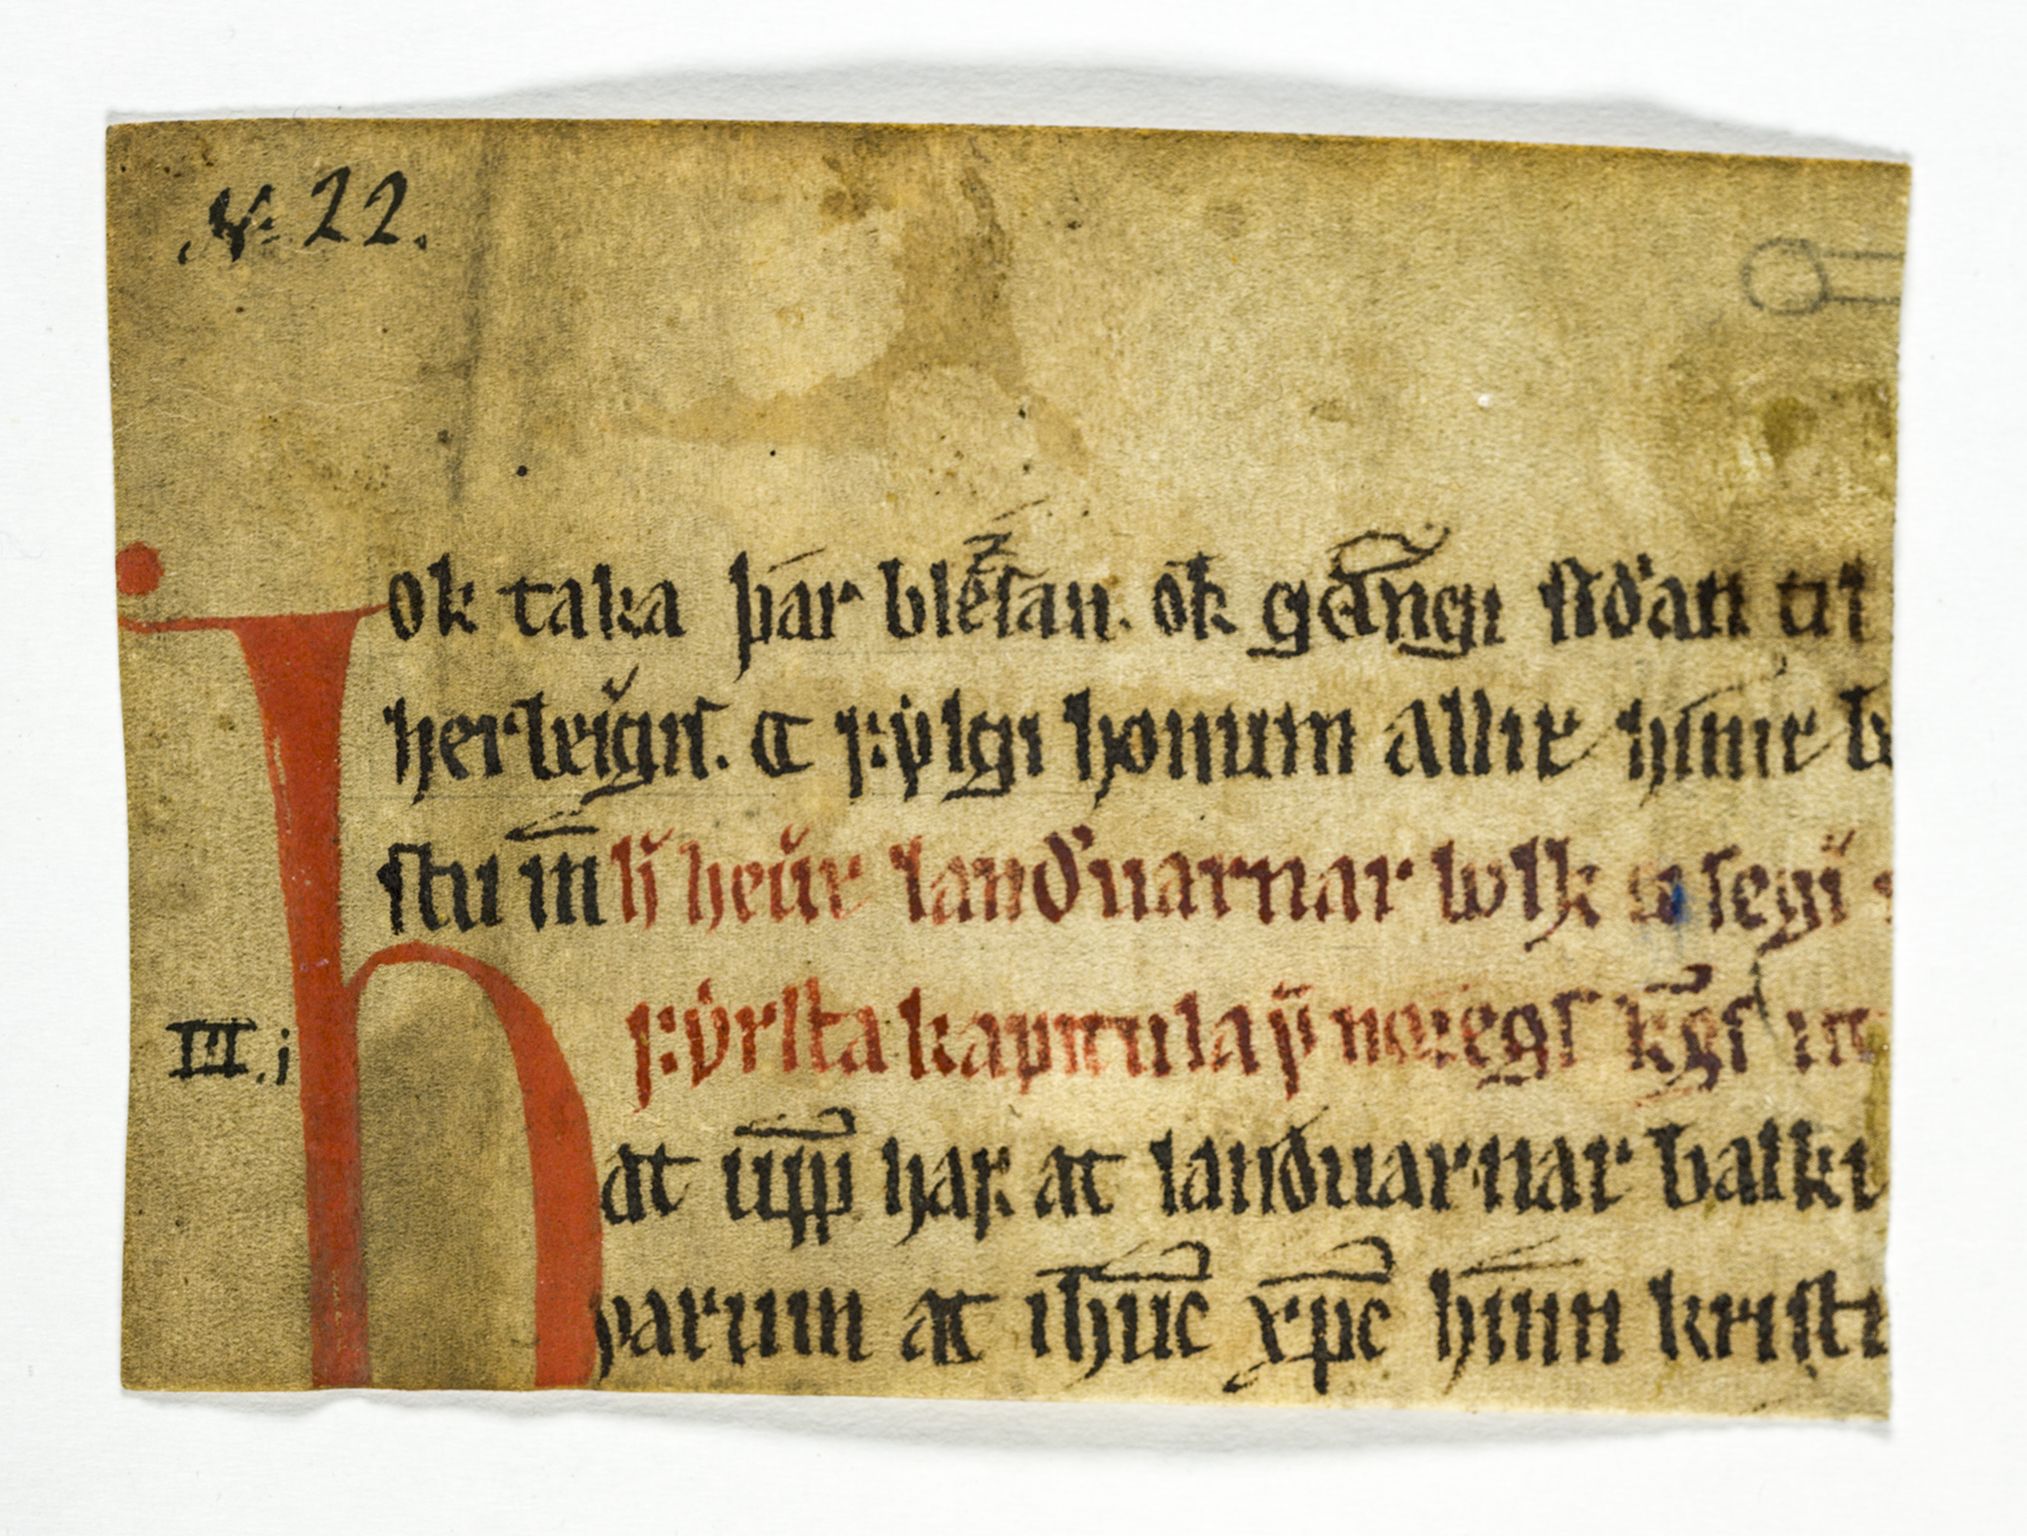 N: 22.
ok taka þar blezsan. ok gangi siðan til
herbeigis. oc fylgi honum aller hinir b
stu m̅ h̅ hefir landvarnar bolk oc segir
fyrsta kapitula vm noregs k̅gs
III. i
hat upp haf at landvarnar balki
varum at ihūc xp̅c hinn kriste